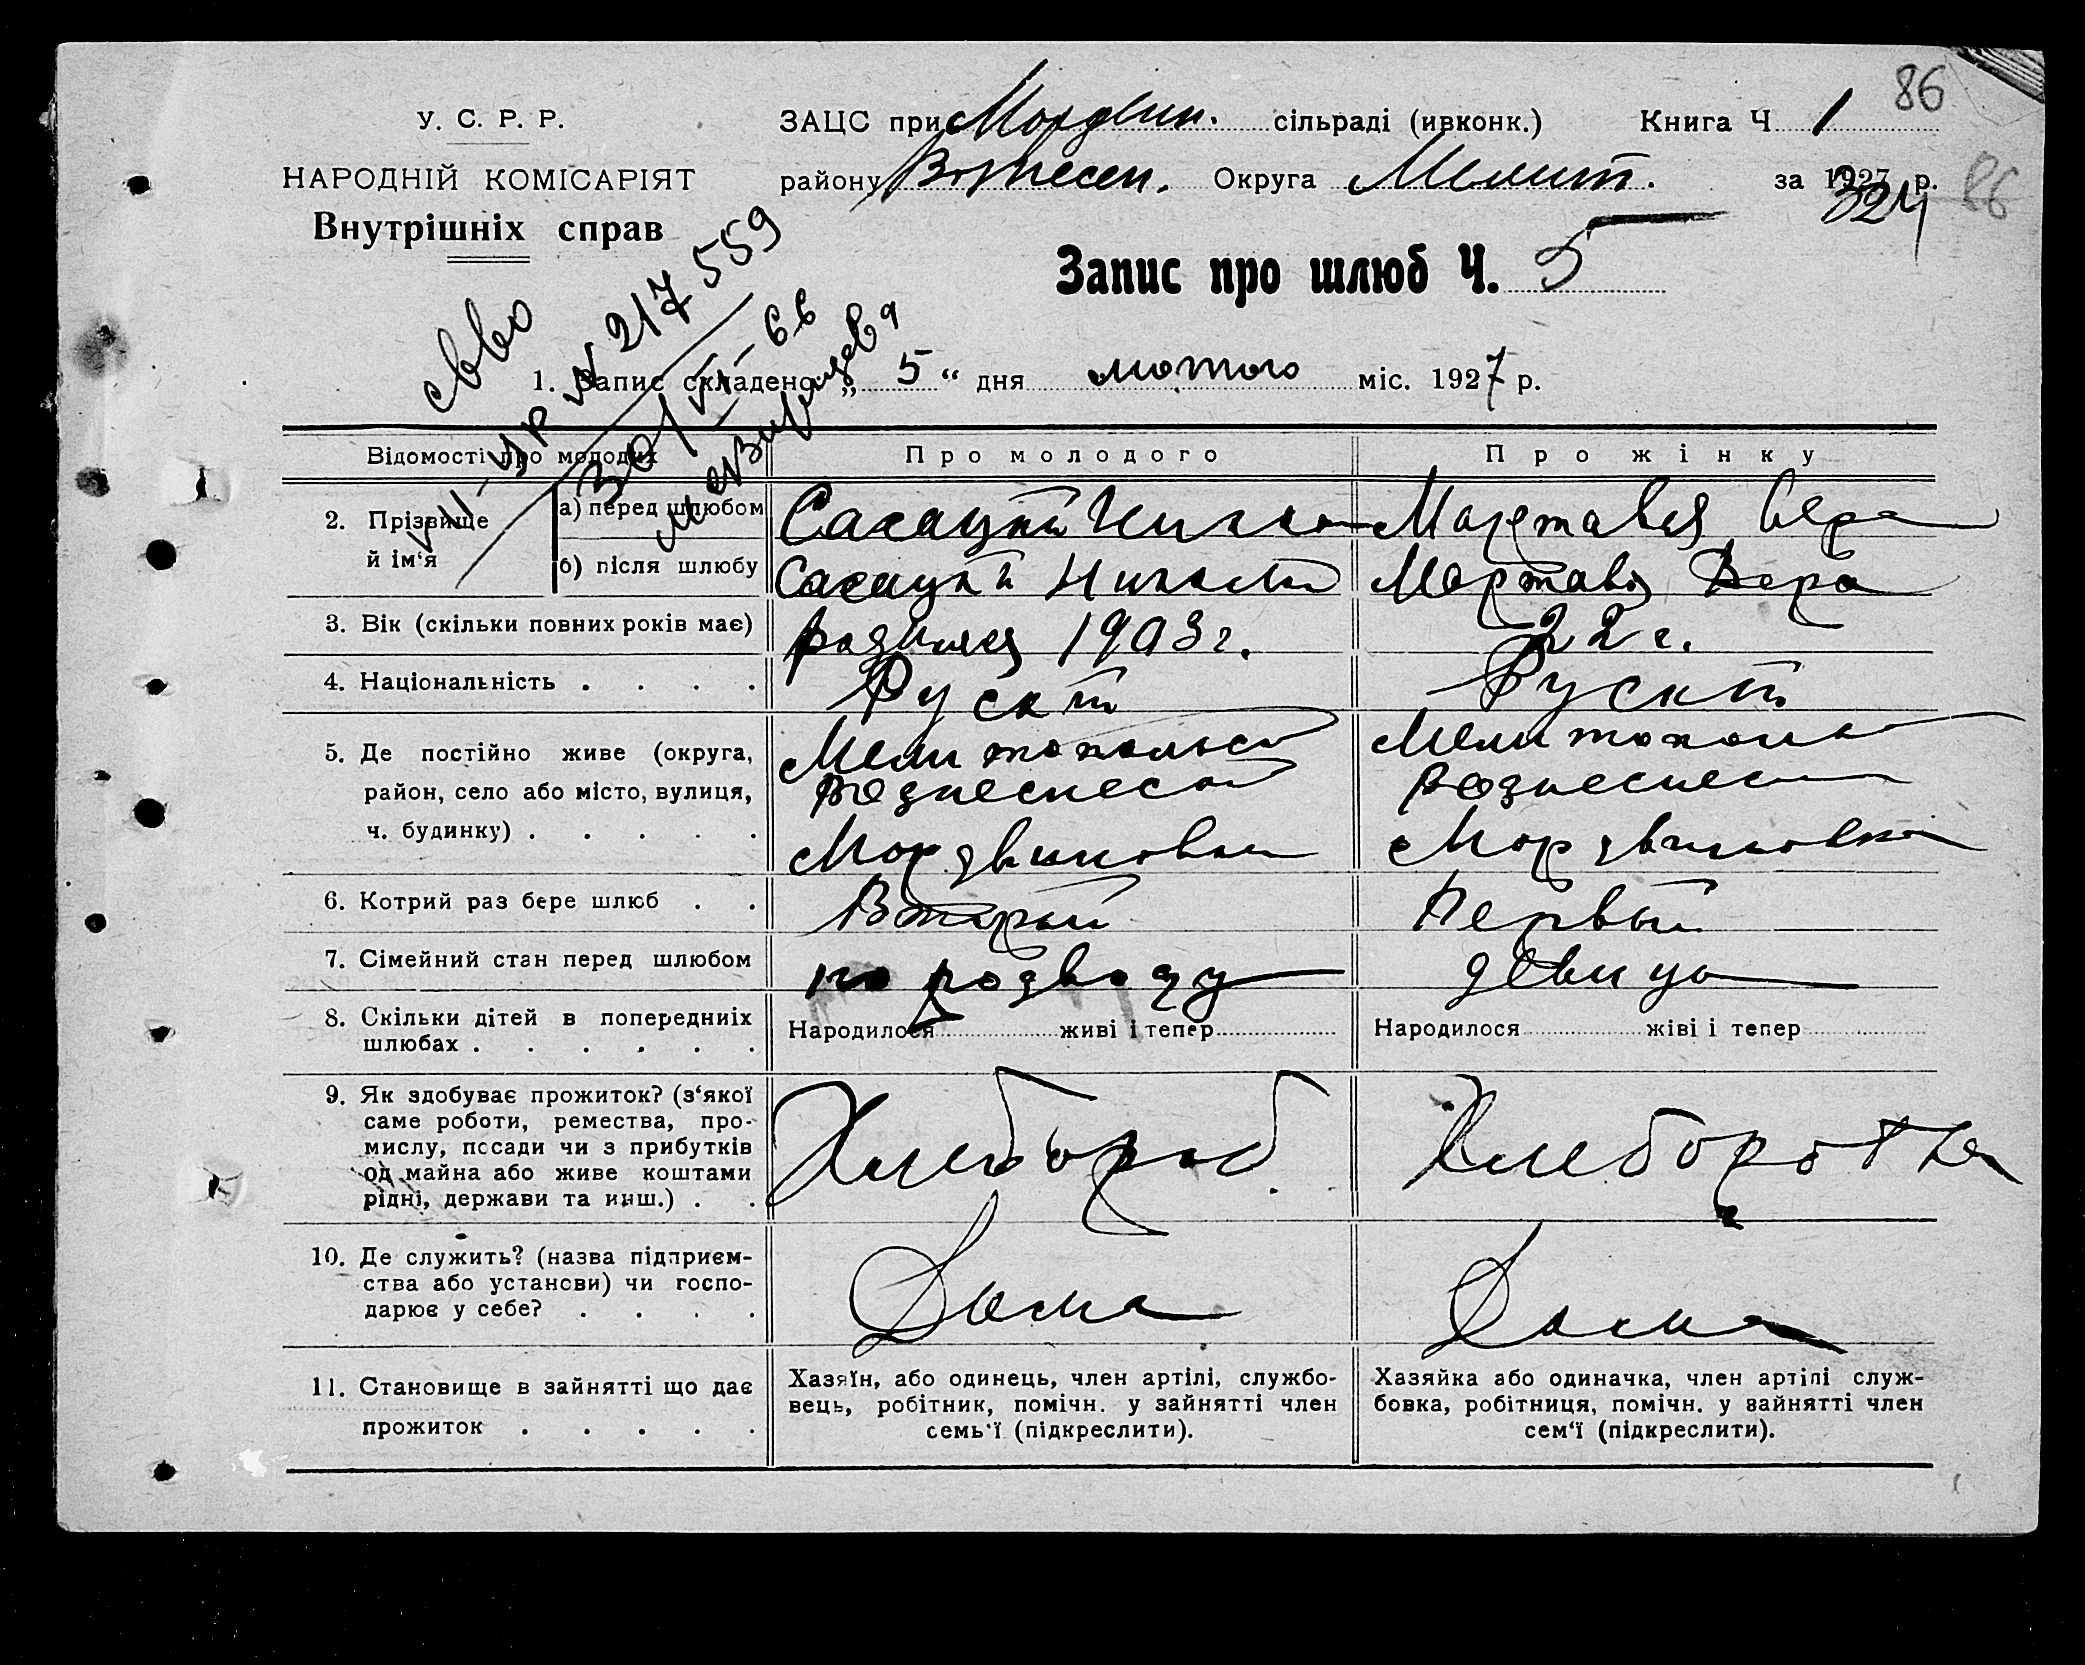 86
У. С. Р. Р.
НАРОДНІЙ КОМІСАРІЯТ
Внутрішніх справ
ЗАЦС при Мордвин. сільраді (ивконк.) Книга Ч 1
району Вознесен. Округа Мелит. за 1927 р.
324
86
Запис про шлюб Ч. 5
217559
301
1. Запис складено „ 5 “ дня лютого міс. 1927 р.
Відомості про молодих
Про молодого
Про жінку
2. Прізвище й ім‘я
а) перед шлюбом
Вера
б) після шлюбу
Вера
3. Вік (скільки повних років має)
родился 1903 г.
22 г.
4. Національність . . . .
Руский
Руский
5. Де постійно живе (округа,
район, село або місто, вулиця,
ч. будинку) . . . . .
Мелитопольск
Вознеснеской
Мордвиновка
Мелитополь
Вознеснес
Мордвиновка
6. Котрий раз бере шлюб . .
Вторый
Первый
7. Сімейний стан перед шлюбом
по розводу
девица
8. Скільки дітей в попередниіх
шлюбах . . . . . .
Народилося живі і тепер
Народилося жіві і тепер
9. Як здобуває прожиток? (з‘якої
саме роботи, ремества, про-
мислу, посади чи з прибутків
од майна або живе коштами
рідні, держави та инш.) . .
Хлебороб
Хлеборобка
10. Де служить? (назва підприєм-
ства або установи) чи госпо-
дарює у себе? . . . .
Дома
Дома
11. Становище в зайнятті що дає
прожиток . . . . .
Хазяїн, або одинець, член артілі, службо-
вець, робітник, помічн. у зайнятті член
семь‘ї (підкреслити).
Хазяйка або одиначка, член артілі служ-
бовка, робітниця, помічн. у зайнятті член
сем‘ї (підкреслити).